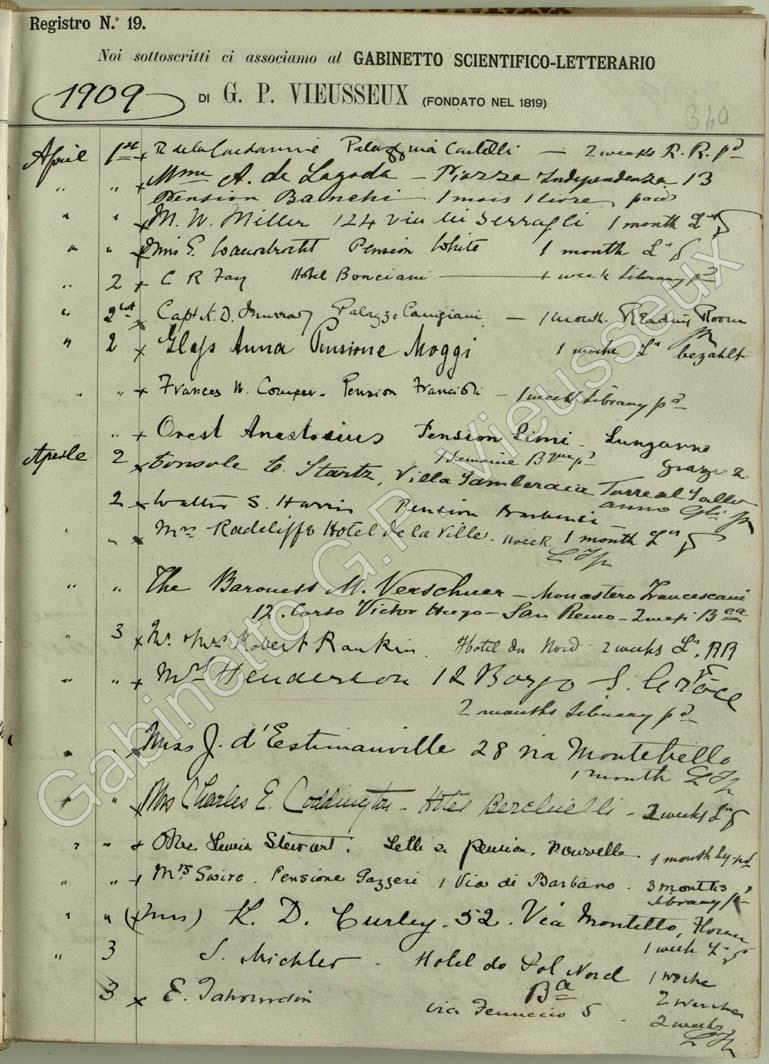 Registro N.° 19.
Noi sottoscritti ci associamo al GABINETTO SCIENTIFICO-LETTERARIO
1909 DI G. P. VIEUSSEUX (FONDATO NEL 1819)
340
April 1st R de la Condamine Palazzina Castelli — 2 weeks R. R. pd
" " Mme A. de Lagoda - Piazza Independenza 13
Pension Bianchi 1 mois 1 livre, paid
" " M. W. Miller 124 Via dei Serragli 1 month
" " Miss E. Pension White 1 month
" 2 C R Fay Hotel Bonciani — 1 week Library pd
" 2nd Capt K. D. Murray Palazzo Canigiani — 1 month. Reading Room
" 2 Glass Anna Pensione Moggi 1 woche bezahlt
" " Frances M. Comper. Pension Francioli - 1 week Library pd
" " Orest Anastasius Pension Limi - Lungarno
grazie 2.
Aprile 2 Console C. Startz, Villa Gamberaia Torre al Gallo
anno
2 Walter S. Harris Pension Barbensi
" " Mrs Radcliffe Hotel de la Ville. 1 week 1 month
" " The Baroness M. Verschuer - Monastero Francescani
12. Corso Victor Hugo - San Remo - 2 mesi Bca
" 3 Mr. & Mrs Robert Rankin Hotel du Nord 2 weeks Ls. RR
" " Mrs Henderson 12 Borgo S. Croce
2 months Library pd
" " Miss J. d'Estimauville 28 via Montebello
1 month
" " Mrs Charles E. Coddington - Hotel Berchielli - 2 weeks
" " Mrs. Lewis Stewart. Pension. Nouvelle 1 month
" " Mrs Swire. Pensione Pazzeri 1 Via di Barbano. 3 months
Library
" " (Miss) K. D. Curley. 52. Via Montello, Florence
1 week
" 3 S. Michler - Hotel do Pol Nord 1 woche
3 E. Ba 2 wochen
via 5. 2 weeks
Gabinetto G.P. Vieusseux